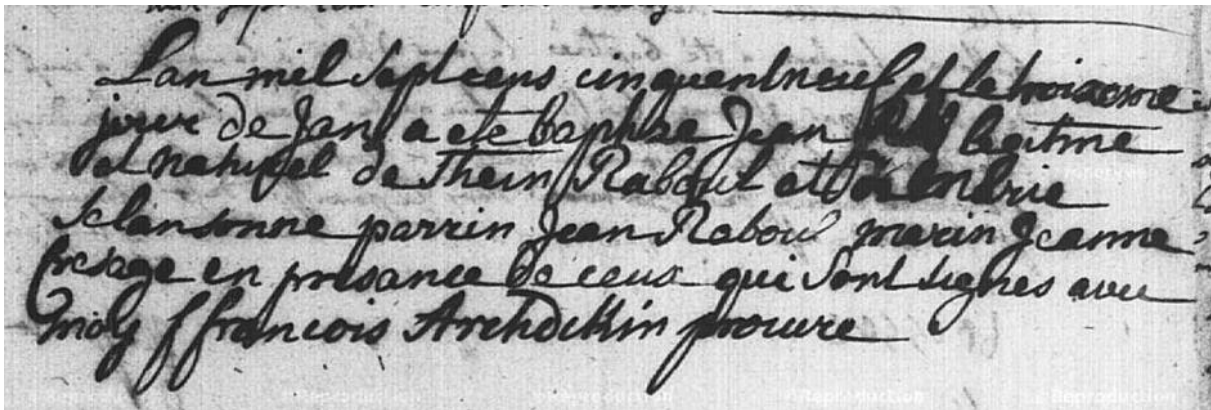 Lan mil Sept cens cinquentneuf et le troixeme
jour de Jan a ete baptise Jean legitime
et naturel de Raboul et de
parrin Jean Raboul marin Jeanne
fresage en presance de ceux qui Sont signes avec
moy ffrancois Archdekin procure